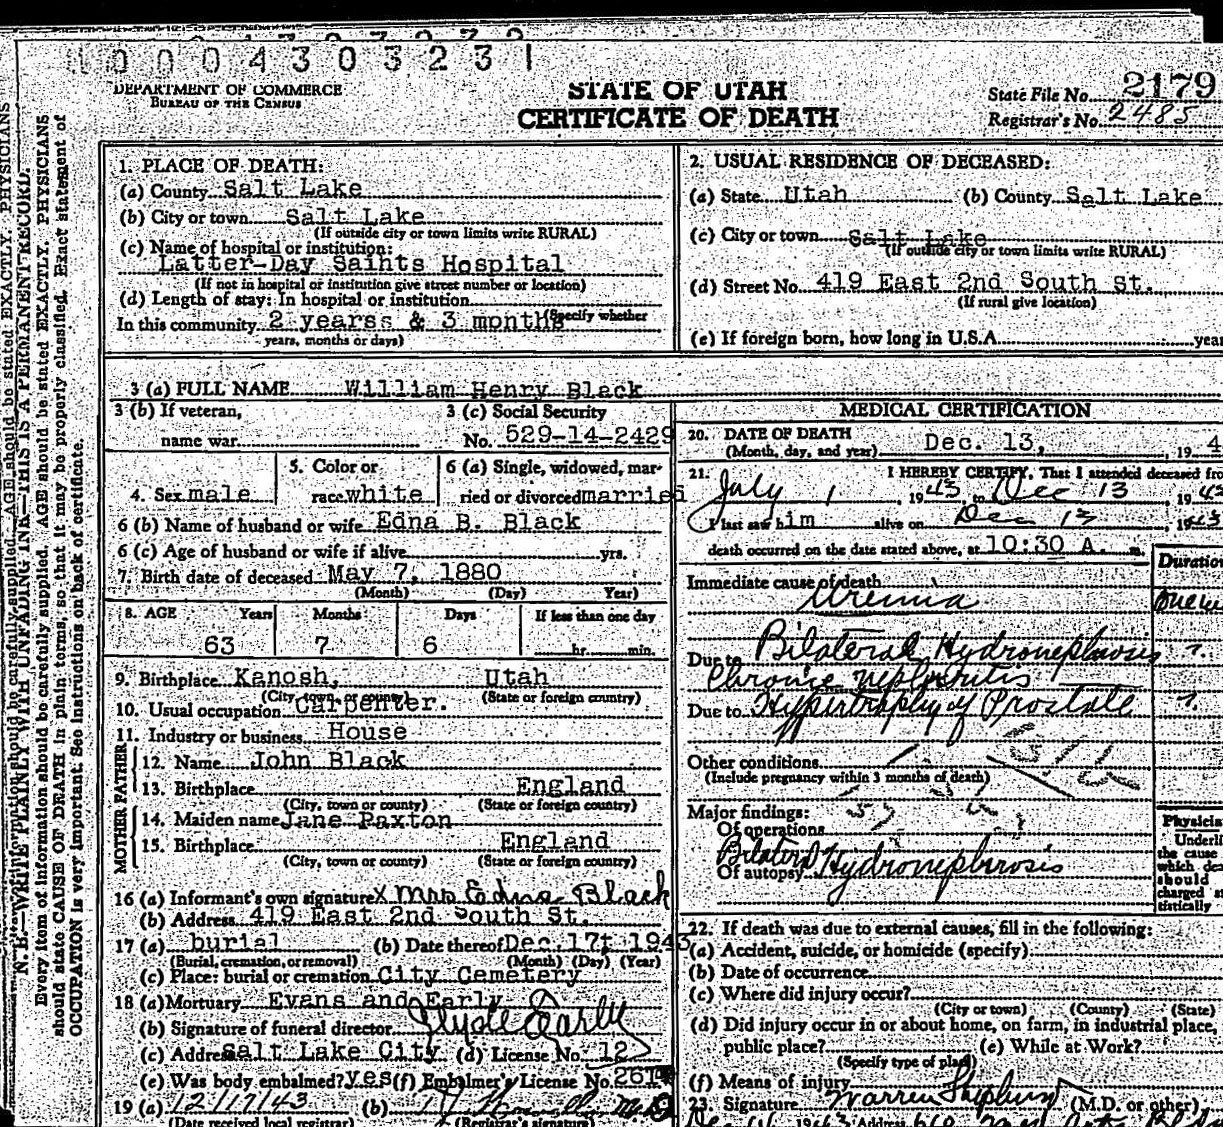 0 0 0 4 3 0 3 2 3 1
DEPARTMENT OF COMMERCE
BUREAU OF THE CENSUS
STATE OF UTAH
CERTIFICATE OF DEATH
State File No. 2179
Registrar's No. 2485
1. PLACE OF DEATH:
(a) County Salt Lake
(b) City or town Salt Lake
(If outside city or town limits write RURAL)
(c) Name of hospital or institution:
Latter-Day Saints Hospital
(If not in hospital or institution give street number or location)
(d) Length of stay: In hospital or institution
(Specify whether
In this community 2 yearss & 3 months
years, months or days)
2. USUAL RESIDENCE OF DECEASED:
(a) State Utah (b) County Salt Lake
(c) City or town Salt Lake
(If outside city or town limits write RURAL)
(d) Street No. 419 East 2nd South St.
(If rural give location)
(e) If foreign born, how long in U.S.A. year
3 (a) FULL NAME William Henry Black
3 (b) If veteran,
name war
3 (c) Social Security
No. 529-14-2429
4. Sex male
5. Color or
race white
6 (a) Single, widowed, mar-
ried or divorced married
6 (b) Name of husband or wife Edna B. Black
6 (c) Age of husband or wife if alive yrs.
7. Birth date of deceased May 7, 1880
(Month) (Day) Year)
8. AGE Years Months Days If less than one day
63 7 6 hr. min.
9. Birthplace Kanosh, Utah
(City, town, or county) (State or foreign country)
10. Usual occupation Carpenter.
11. Industry or business House
FATHER
12. Name John Black
13. Birthplace England
(City, town or county) (State or foreign country)
MOTHER
14. Maiden name Jane Paxton
15. Birthplace England
(City, town or county) (State or foreign country)
16 (a) Informant's own signature X Mrs Edna Black
(b) Address 419 East 2nd South St.
17 (a) burial (b) Date thereof Dec. 17t 1943
(Burial, cremation, or removal) (Month) (Day) (Year)
(c) Place: burial or cremation City Cemetery
18 (a) Mortuary Evans and Early
(b) Signature of funeral director Clyde Early
(c) Address Salt Lake City (d) License No. 12
(e) Was body embalmed? yes (f) Embalmer's License No.
19 (a) 12/17/43 (b)
(Date received local registrar) (Registrar's signature)
MEDICAL CERTIFICATION
20. DATE OF DEATH
(Month, day, and year) Dec. 13, 194
21. I HEREBY CERTIFY, That I attended deceased fro
July 1, 1943, to Dec 13 1943
I last saw him alive on Dec 13, 1943
death occurred on the date stated above, at 10:30 A. m.
Duration
Immediate cause of death
Uremia
Due to Bilateral Hydronephrosis ?
Chronic nephritis
Due to Hypertrophy of Prostate ?
Other conditions
(Include pregnancy within 3 months of death)
Major findings:
Of operations
Of autopsy Bilateral Hydronephrosis
Physicia
Underli
the cause
which dea
should
charged st
tistically
22. If death was due to external causes, fill in the following:
(a) Accident, suicide, or homicide (specify)
(b) Date of occurrence
(c) Where did injury occur?
(City or town) (County) (State)
(d) Did injury occur in or about home, on farm, in industrial place,
public place? (e) While at Work?
(Specify type of place)
(f) Means of injury
23. Signature Warren Shepherd (M.D. or other)
1943 Address
N. B.—WRITE PLAINLY WITH UNFADING INK—THIS IS A PERMANENT RECORD.
Every item of information should be carefully supplied. AGE should be stated EXACTLY. PHYSICIANS
should state CAUSE OF DEATH in plain terms, so that it may be properly classified. Exact statement of
OCCUPATION is very important. See instructions on back of certificate.